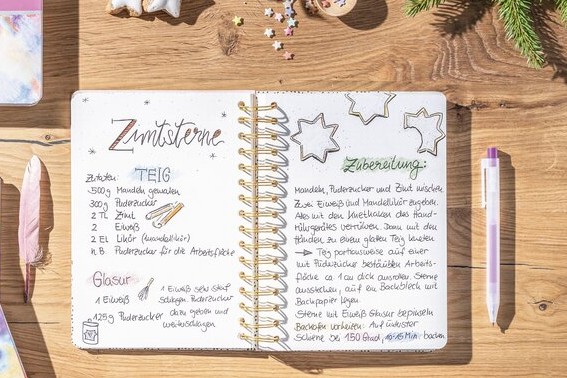 Zimtsterne
Zutaten: TEIG
500g Mandeln gemahlen
300g Puderzucker
2 TL Zimt
2 Eiweiß
2 EL Likör (Mandellikör)
n.B. Puderzucker für die Arbeitsfläche
Glasur
1 Eiweiß
125g Puderzucker
1 Eiweiß sehr steif
schlagen Puderzucker
dazu geben und
weiterschlagen
Zubereitung:
Mandeln, Puderzucker und Zimt mischen.
Zwei Eiweiß und Mandellikör zugeben.
Alles mit den Knethaken des Hand-
rührgerätes verrühren. Dann mit den
Händen zu einem glatten Teig kneten.
→ Teig portionsweise auf einer
mit Puderzucker bestäubten Arbeits-
fläche ca 1 cm dick ausrollen. Sterne
ausstechen, auf ein Backblech mit
Backpapier legen.
Sterne mit Eiweiß Glasur bepinseln
Backofen vorheizen: Auf unterster
Schiene bei 150 Grad, 10-15 Min. backen